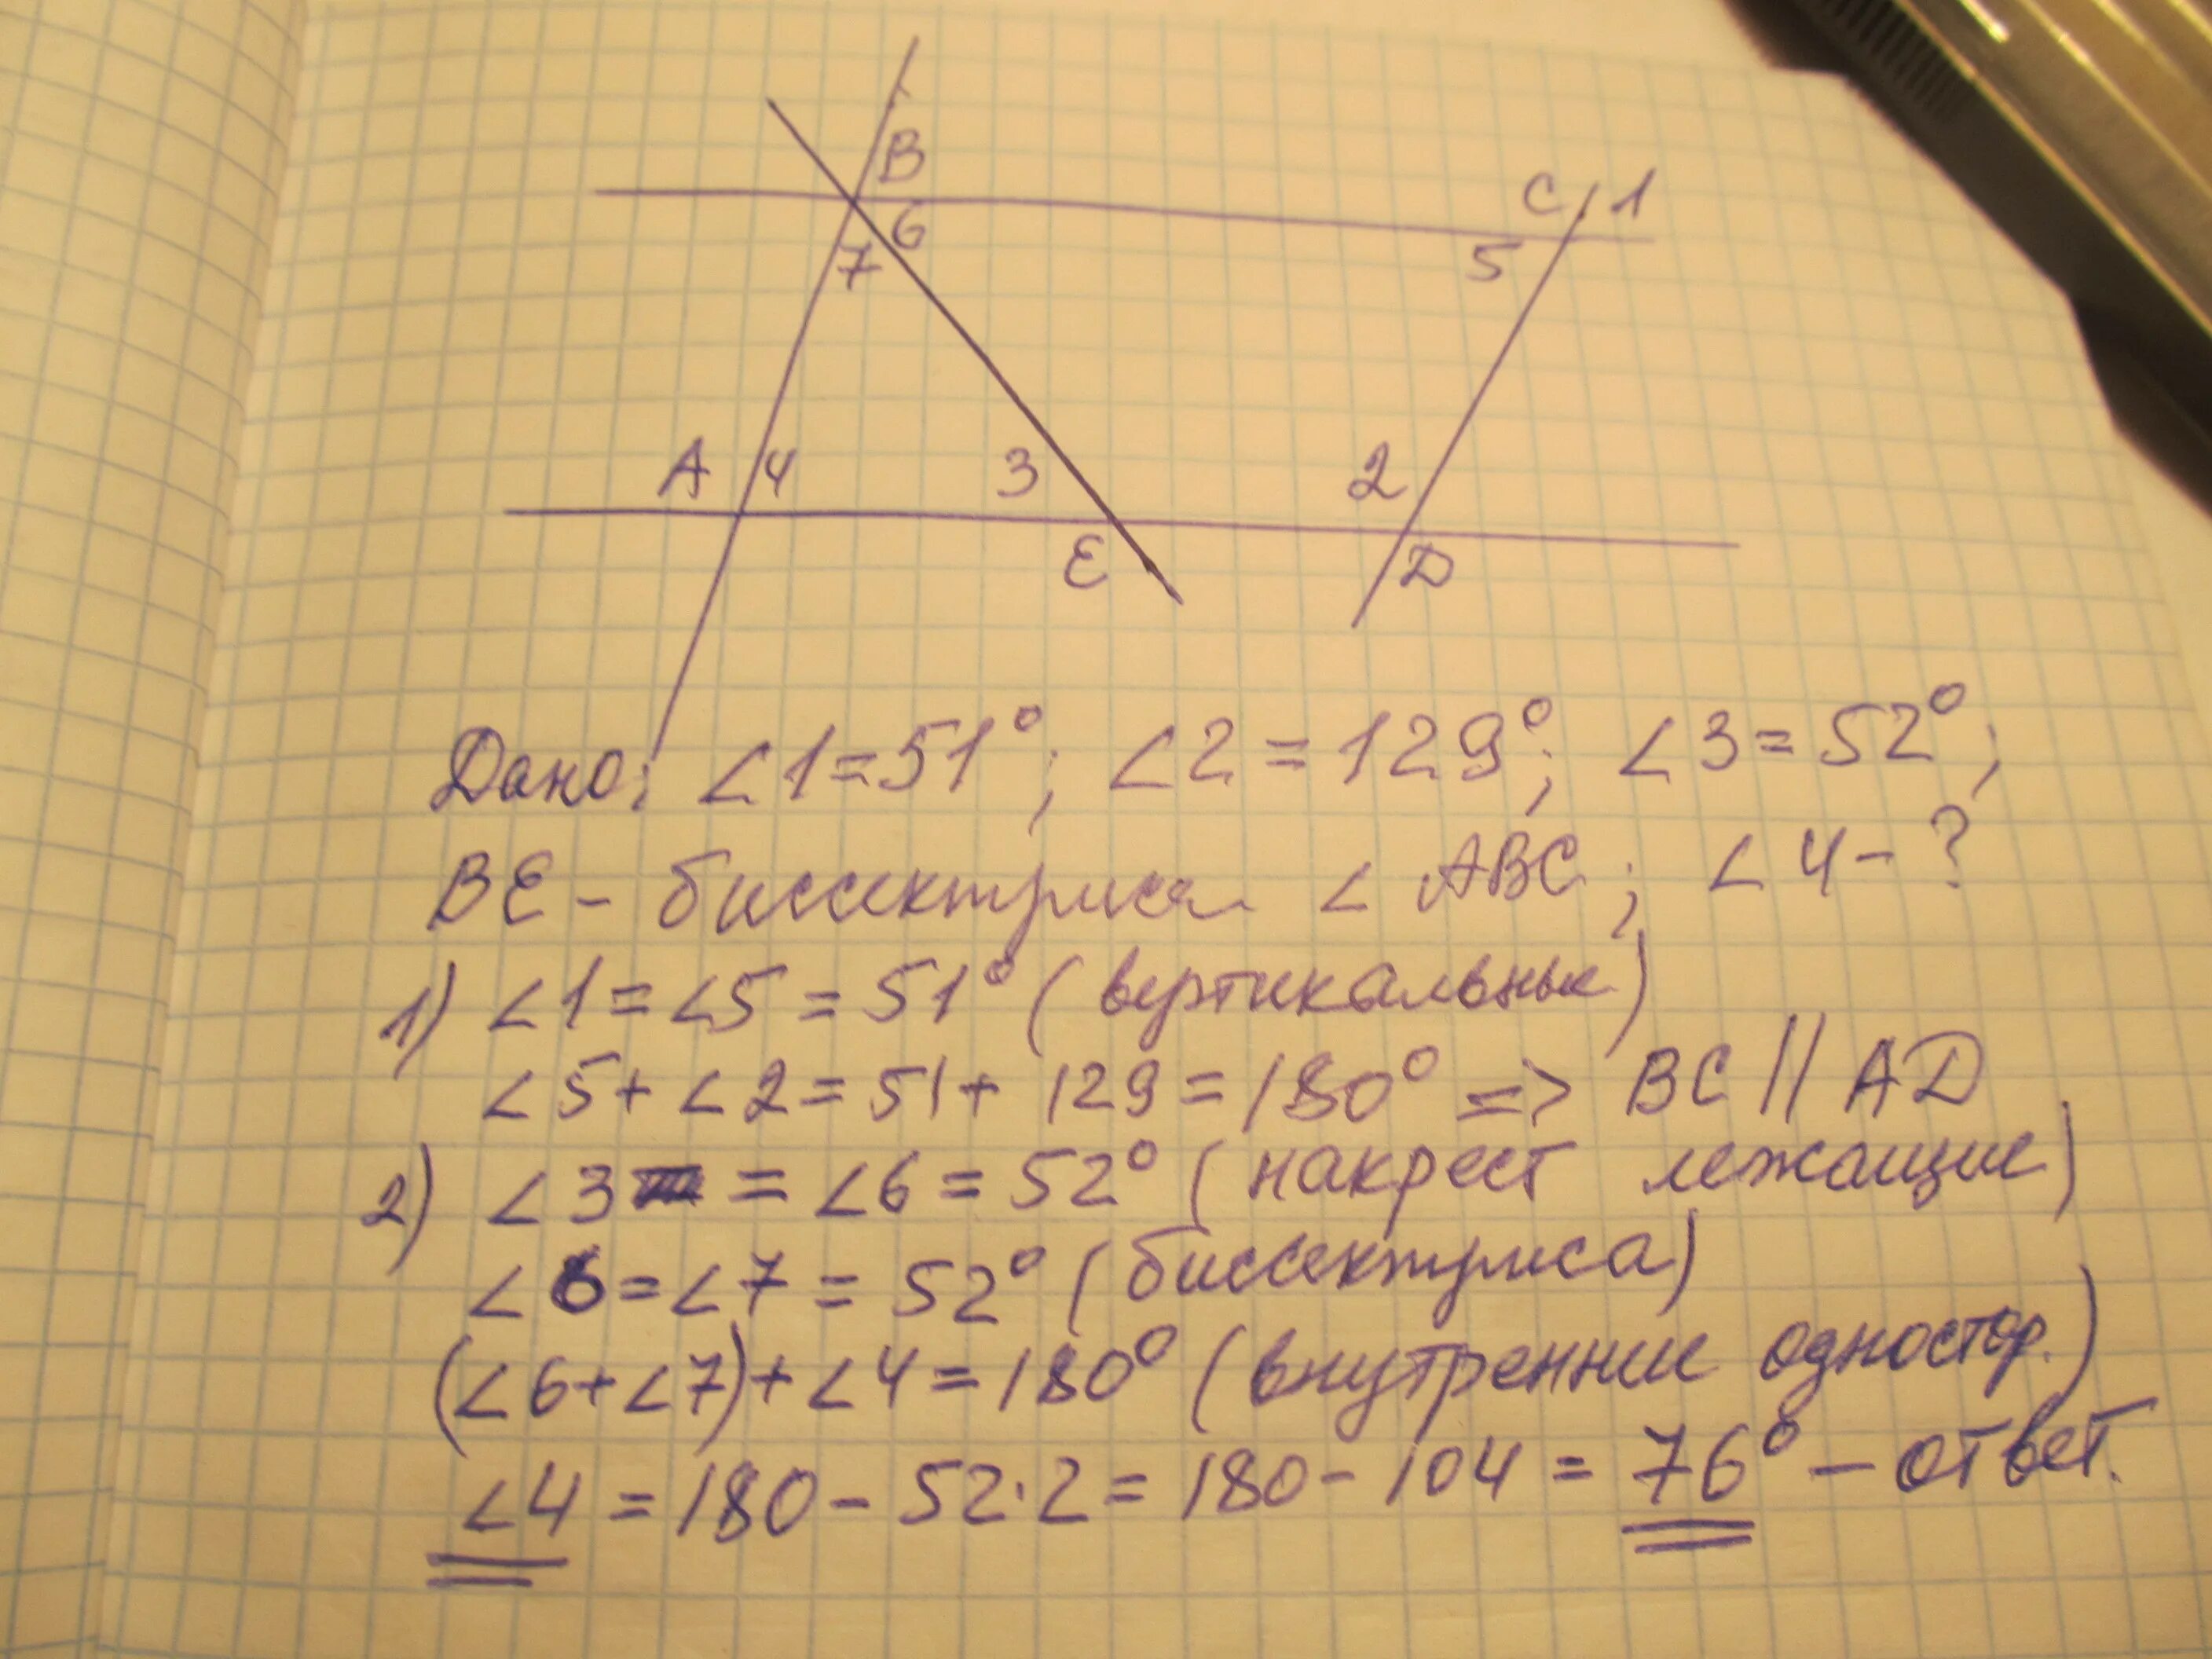 B
C 1
6
7
5
A 4
3
2
E
D
Дано: ∠1=51°; ∠2=129°; ∠3=52°;
BE - биссектриса ∠ ABC; ∠4-?
1) ∠1=∠5=51° (вертикальные)
∠5+∠2=51+129=180° => BC || AD
2) ∠3 = ∠6 = 52° (накрест лежащие)
∠6=∠7=52° (биссектриса)
(∠6+∠7)+∠4=180° (внутренние одностор.)
∠4 = 180-52·2 = 180-104 = 76° - ответ.